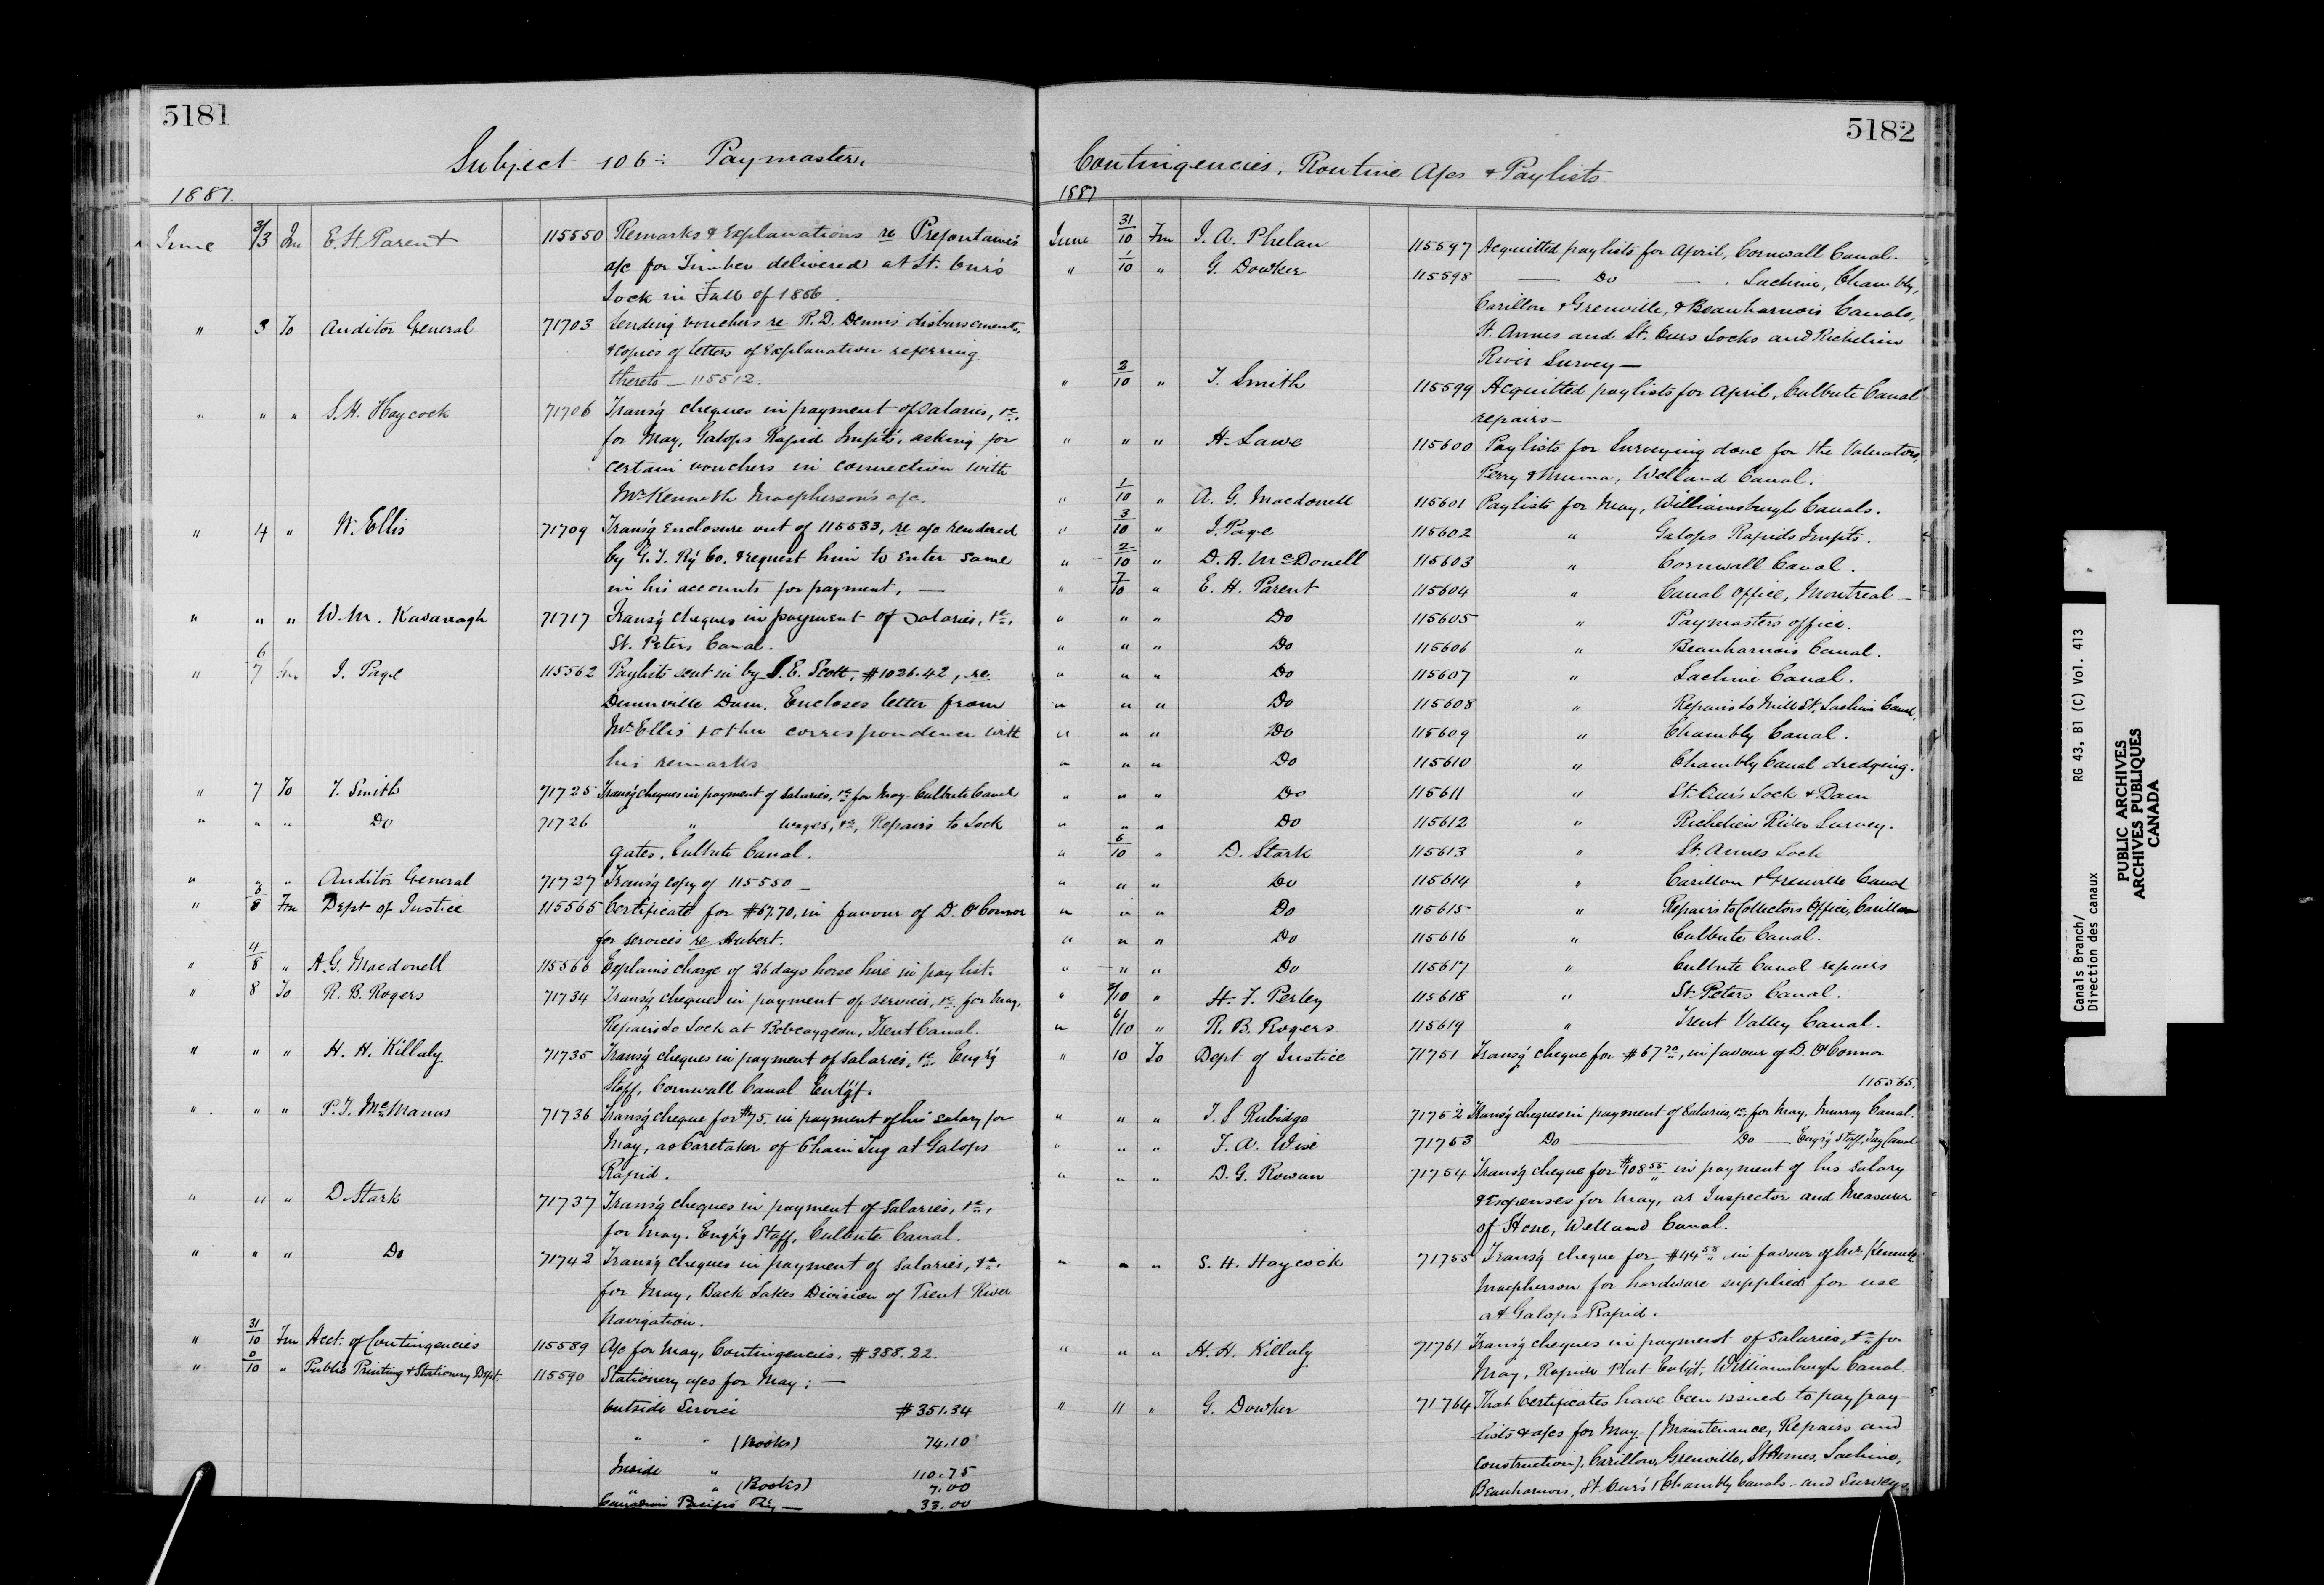 5181
Subject 106 :- Paymaster,
1887.
June 3/3 Fm E. H. Parent 115550 Remarks & Explanations re Prefontaine's
a/c for Timber delivered at St. Ours
Lock in Fall of 1886.
" 3 To Auditor General 71703 Sending vouchers re R. D. Dennis' disbursements,
& copies of letters of Explanation referring
thereto — 115512.
" " " S. H. Haycock 71706 Trans'g cheques in payment of salaries, &c.
for May, Galops Rapid Imp'ts, asking for
certain vouchers in connection with
Mr Kenneth Macpherson's a/c.
" 4 " W. Ellis 71709 Trans'g Enclosure out of 115533, re a/c rendered
by G. T. R'y Co. & request him to enter same
in his accounts for payment, —
" " " W. M. Kavanagh 71717 Trans'g cheques in payment of salaries, &c.,
St. Peters Canal.
" 6/7 Fm J. Page 115562 Paylists sent in by S. E. Scott, $1026.42, re
Dunnville Dam. Encloses letter from
Mr Ellis & other correspondence with
his remarks.
" 7 To T. Smith 71725 Trans'g cheques in payment of salaries, &c for May. Culbute Canal
" " " Do 71726 " wages, &c, Repairs to Lock
gates, Culbute Canal.
" " " Auditor General 71727 Trans'g copy of 115550 —
" 3/8 Fm Dept of Justice 115565 Certificate for $67.70, in favour of D. O'Connor
for services re Hubert.
" 4/8 " A. G. Macdonell 115566 Explains charge of 26 days horse hire in pay list.
" 8 To R. B. Rogers 71734 Trans'g cheques in payment of services, &c for May,
Repairs to Lock at Bobcaygeon, Trent Canal.
" " " H. H. Killaly 71735 Trans'g cheques in payment of salaries, &c. Eng'g
Staff, Cornwall Canal Enl'g't.
" " " P. J. McManus 71736 Trans'g cheque for $75. in payment of his salary for
May, as Caretaker of Chain Tug at Galops
Rapid.
" " " D. Stark 71737 Trans'g cheques in payment of salaries, &c.,
for May, Eng'g Staff, Culbute Canal.
" " " Do 71742 Trans'g cheques in payment of salaries, &c.
for May, Back Lakes Division of Trent River
Navigation.
" 31/10 Fm Acct. of Contingencies 115589 A/c for May, Contingencies, $388.22.
" 8/10 " Public Printing & Stationery Dept. 115590 Stationery a/cs for May; —
Outside Service $351.34
" " (Books) 74.10
Inside " 110.75
" " (Books) 7.00
Canadian Pacific R'y — 33.00
5182
Contingencies, Routine A/cs & Paylists.
1887
June 31/10 Fm J. A. Phelan 115597 Acquitted paylists for April, Cornwall Canal.
" 1/10 " G. Dowker 115598 — Do — Lachine, Chambly,
Carillon & Grenville, & Beauharnois Canals,
St. Annes and St. Ours Locks and Richelieu
River Survey —
" 2/10 " T. Smith 115599 Acquitted paylists for April, Culbute Canal
repairs —
" " " H. Lawe 115600 Paylists for Surveying done for the Valuators,
Perry & Muma, Welland Canal.
" 1/10 " A. G. Macdonell 115601 Paylists for May, Williamsburgh Canals.
" 3/10 " J. Page 115602 " Galops Rapids Imp'ts.
" 2/10 " D. A. McDonell 115603 " Cornwall Canal.
" 7/10 " E. H. Parent 115604 " Canal Office, Montreal —
" " " Do 115605 " Paymasters office.
" " " Do 115606 " Beauharnois Canal.
" " " Do 115607 " Lachine Canal.
" " " Do 115608 " Repairs to Mill St. Lachine Canal.
" " " Do 115609 " Chambly Canal.
" " " Do 115610 " Chambly Canal dredging.
" " " Do 115611 " St. Ours Lock & Dam
" " " Do 115612 " Richelieu River Survey.
" 6/10 " D. Stark 115613 " St. Annes Lock
" " " Do 115614 " Carillon & Grenville Canal
" " " Do 115615 " Repairs to Collectors Office, Carillon
" " " Do 115616 " Culbute Canal.
" " " Do 115617 " Culbute Canal repairs
" /10 " H. F. Perley 115618 " St. Peters Canal.
" 6/10 " R. B. Rogers 115619 " Trent Valley Canal.
" 10 To Dept of Justice 71751 Trans'g cheque for $67.70, in favour of D. O'Connor
115565.
" " " T. S. Rubidge 71752 Trans'g cheques in payment of salaries, &c for May, Murray Canal.
" " " F. A. Wise 71753 Do — Do — Eng'g Staff, Tay Canal
" " " D. G. Rowan 71754 Trans'g cheque for $108.55 in payment of his salary
& Expenses for May, as Inspector and Measurer
of Stone, Welland Canal.
" " " S. H. Haycock 71755 Trans'g cheque for $44.58, in favour of Mr Kenneth
Macpherson for hardware supplied for use
at Galops Rapid.
" " " H. H. Killaly 71761 Trans'g cheques in payment of salaries, &c for
May, Rapide Plat Enl'g't, Williamsburgh Canal.
" 11 " G. Dowker 71764 That Certificates have been issued to pay pay-
lists & a/cs for May (Maintenance, Repairs and
Construction), Carillon, Grenville, St Annes, Lachine,
Beauharnois, St. Ours & Chambly Canals — and Surveys
Canals Branch/ RG 43, B1 (C) Vol. 413
Direction des canaux
PUBLIC ARCHIVES
ARCHIVES PUBLIQUES
CANADA